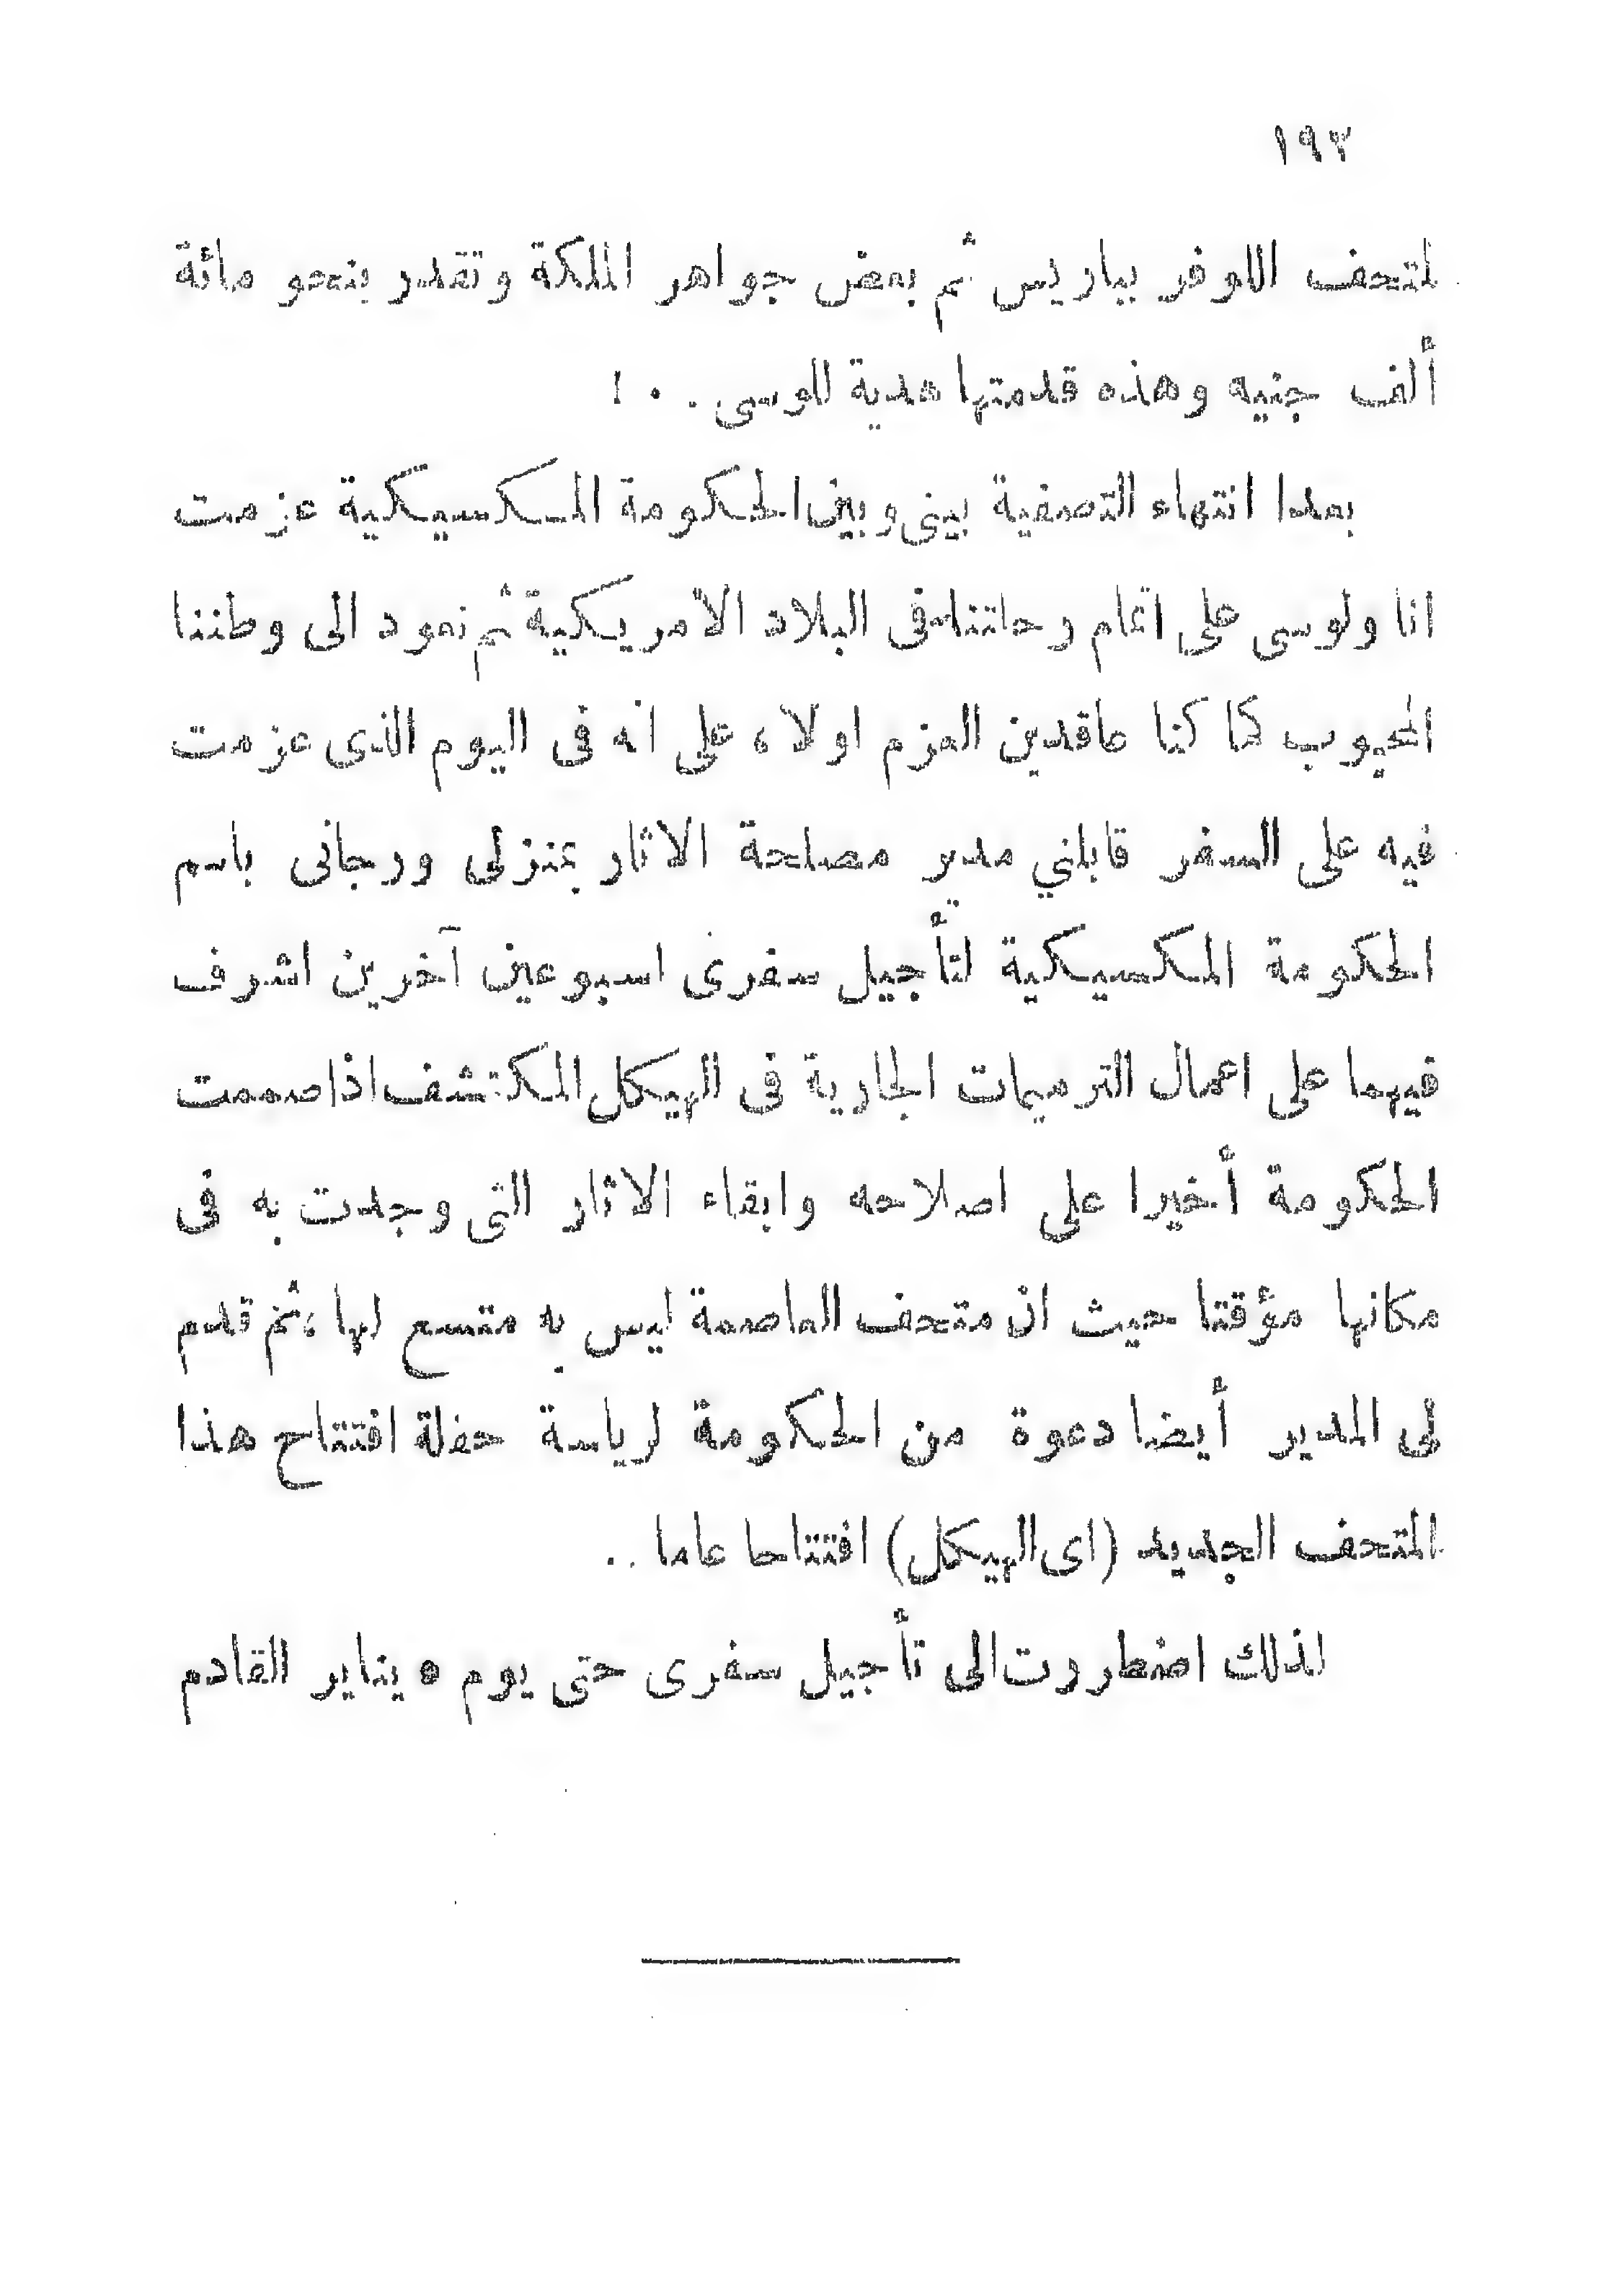 ١٩٣
لمتحف اللوفر بباريس ثم بعض جواهر الملكة وتقدر بنحو مائة
ألف جنيه وهذه قدمتها هدية للوسى . . !
بعدا انتهاء التصفية بينى وبين الحكومة المكسيكية عزمت
انا ولوسى على اتمام رحلتنا فى البلاد الأمريكية ثم نعود الى وطننا
المحبوب كما كنا عاقدين العزم اولا ، على انه فى اليوم الذى عزمت
فيه على السفر قابلني مدير مصلحة الاثار بمنزلى ورجانى باسم
الحكومة المكسيكية لتأجيل سفرى اسبوعين آخرين اشرف
فيهما على اعمال الترميمات الجارية فى الهيكل المكتشف اذا صممت
الحكومة أخيرا على اصلاحه وابقاء الاثار التى وجدت به فى
مكانها مؤقتا حيث ان متحف العاصمة ليس به متسع لها ، ثم قدم
لى المدير أيضا دعوة من الحكومة لرياسة حفلة افتتاح هذا
المتحف الجديد (اى الهيكل) افتتاحا عاما ..
لذلك اضطررت الى تأجيل سفرى حتى يوم ٥ يناير القادم